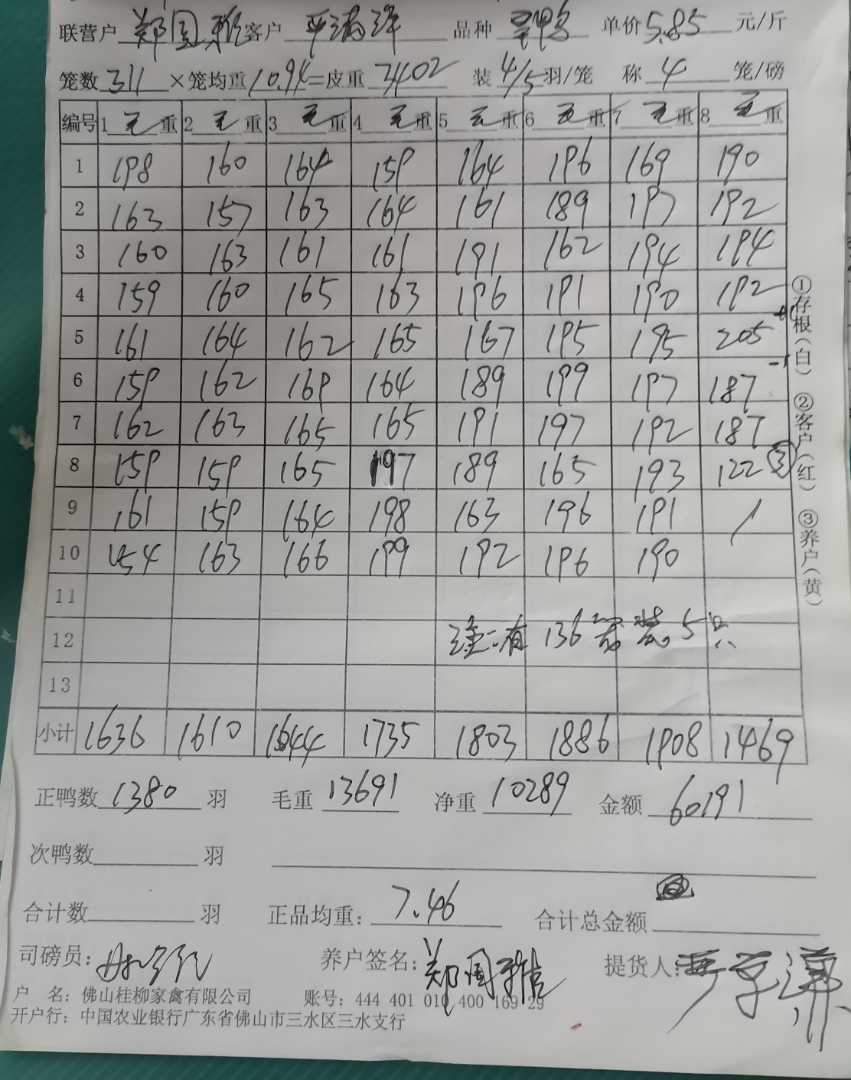 联营户 郑国雅 客户 平满洋 品种 单价 5.85 元/斤
笼数 311 ×笼均重 10.94 =皮重 3402 装 4/5 羽/笼 称 4 笼/磅
编号 1 毛重 2 毛重 3 毛重 4 毛重 5 毛重 6 毛重 7 毛重 8 毛重
1 198 160 164 159 164 196 169 190
2 163 157 163 164 161 189 197 192
3 160 163 161 161 191 162 194 194
4 159 160 165 163 196 191 190 192
5 161 164 162 165 167 195 195 205
6 159 162 169 164 189 199 197 187
7 162 163 165 165 191 197 192 187
8 159 159 165 197 189 165 193 122 ③
9 161 159 164 198 163 196 191
10 154 163 166 199 192 196 190
11
12 注:有 136 笼装 5 只
13
小计 1636 1610 1644 1735 1803 1886 1908 1469
正鸭数 1380 羽 毛重 13691 净重 10289 金额 60191
次鸭数 羽
合计数 羽 正品均重: 7.46 合计总金额
司磅员: 养户签名: 郑国雅 提货人:
户 名: 佛山桂柳家禽有限公司 账号: 444 401 010 400 169 29
开户行: 中国农业银行广东省佛山市三水区三水支行
①存根(白) ②客户(红) ③养户(黄)